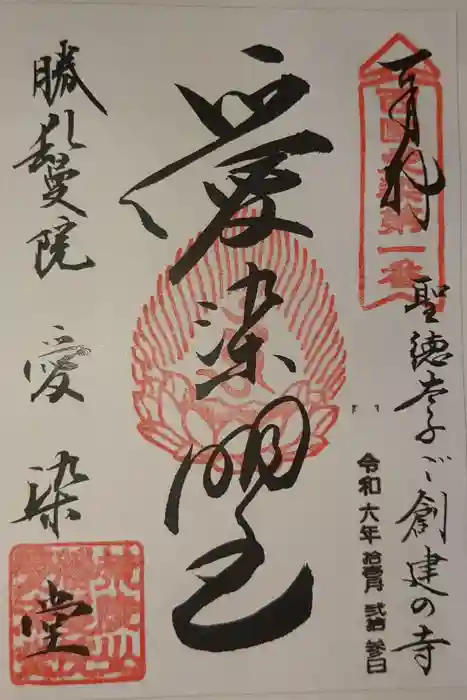 奉拝
聖徳太子ご創建の寺
令和六年 拾壱月 弐拾参日
愛染明王
勝鬘院 愛染堂